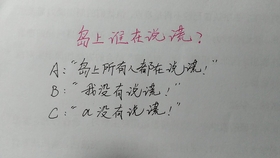 岛上谁在说谎?
A:“岛上所有人都在说谎!”
B:“我没有说谎!”
C:“a没有说谎!”